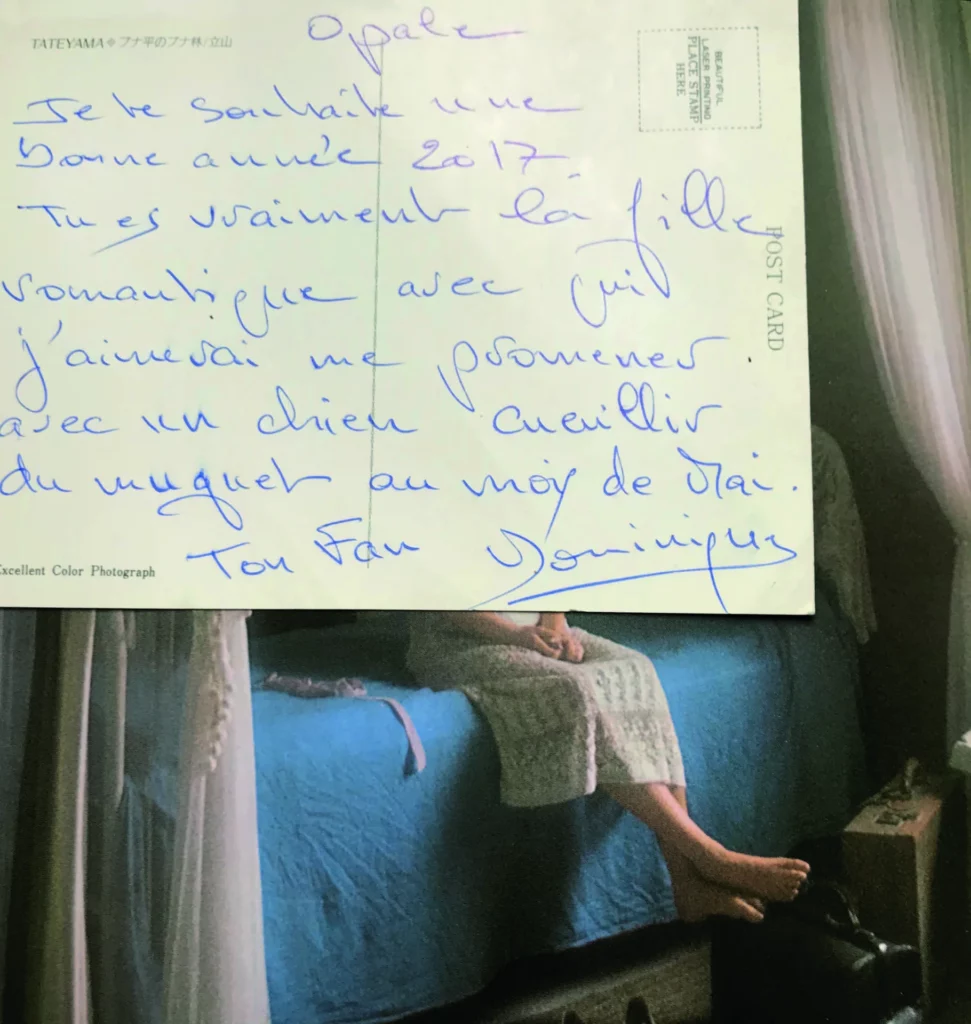 TATEYAMA ◆ ブナ平のブナ林/立山
Opale
BEAUTIFUL
LASER PRINTING
PLACE STAMP
HERE
Je te souhaite une
bonne année 2017
Tu es vraiment la fille
romantique avec qui
j'aimerai me promener.
avec un chien cueillir
du muguet au moy de Mai.
Ton Fan Dominique
POST CARD
Excellent Color Photograph